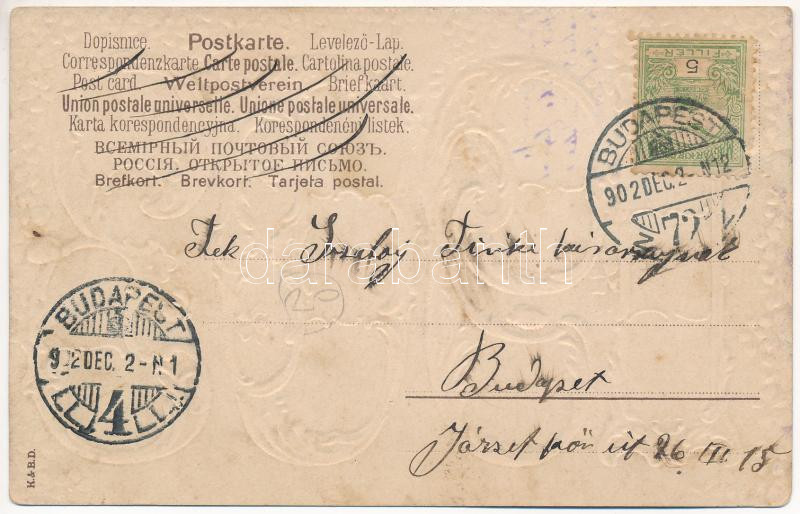 Dopisnice. Postkarte. Levelező-Lap.
Correspondenzkarte. Carte postale. Cartolina postale.
Post card. Weltpostverein. Briefkaart.
Union postale universelle. Unione postale universale.
Karta korespondencyjna. Korespondenční listek.
ВСЕМІРНЫЙ ПОЧТОВЫЙ СОЮЗЪ.
РОССІЯ. ОТКРЫТОЕ ПИСЬМО.
Brefkort. Brevkort. Tarjeta postal.
FILLER
5
BUDAPEST
902 DEC. 2-N12
72
Tek Szalay Tinka
darabanth
20
BUDAPEST
902 DEC. 2-N1
4
Budapest
József 26 III 15
K. & B.D.